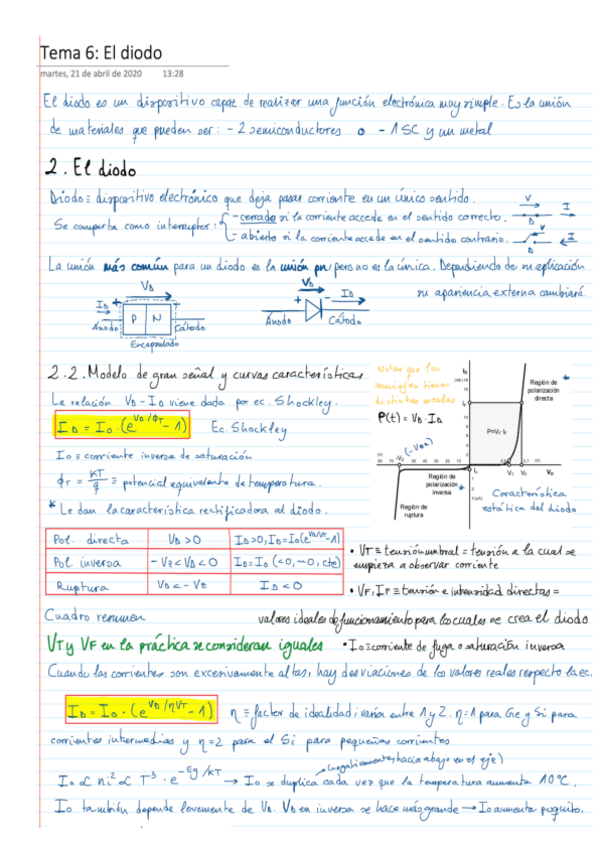 Tema 6: El diodo
martes, 21 de abril de 2020 13:28
El diodo es un dispositivo capaz de realizar una función electrónica muy simple. Es la unión
de materiales que pueden ser: - 2 semiconductores o - 1 SC y un metal
2. El diodo
Diodo ≡ dispositivo electrónico que deja pasar corriente en un único sentido.
Se comporta como interruptor: - cerrado si la corriente accede en el sentido correcto.
- abierto si la corriente accede en el sentido contrario.
V I
D
D I
La unión más común para un diodo es la unión pn, pero no es la única. Dependiendo de su aplicación
su apariencia externa cambiará.
VD
ID + -
P N
Ánodo Cátodo
Encapsulado
VD
+ - ID
Ánodo Cátodo
2.2. Modelo de gran señal y curvas características
La relación VD - ID viene dada por ec. Shockley.
ID = I0 · (e^VD/ϕT - 1) Ec. Shockley
I0 ≡ corriente inversa de saturación
ϕT = KT/q ≡ potencial equivalente de temperatura.
* Le dan la característica rectificadora al diodo.
Notar que los
semiejes tienen
distintas escalas
P(t) = VD · ID
(-VBR)
Región de
polarización
directa
P=VF·IF
Región de
polarización
inversa
Región de
ruptura
Característica
estática del diodo
Pol. directa VD > 0 ID>0, ID=I0(e^VD/VT-1)
Pol inversa -VZ<VD<0 ID=I0 (<0, ~0, cte)
Ruptura VD < -VZ ID < 0
• VT ≡ tensión umbral = tensión a la cual se
empieza a observar corriente
• VF, IF ≡ tensión e intensidad directas =
valores ideales de funcionamiento para los cuales se crea el diodo
Cuadro resumen
VT y VF en la práctica se consideran iguales • I0 ≡ corriente de fuga o saturación inversa
Cuando las corrientes son excesivamente altas, hay desviaciones de los valores reales respecto la ec.
ID = I0 · (e^VD/ηVT - 1) η ≡ factor de idealidad: varía entre 1 y 2. η=1 para Ge y Si para
corrientes intermedias y η=2 para el Si para pequeñas corrientes
(negativamente, hacia abajo en el eje)
I0 ∝ ni² ∝ T³ · e^-Eg/KT → I0 se duplica cada vez que la temperatura aumenta 10ºC.
I0 también depende levemente de VD. VD en inversa se hace más grande → I0 aumenta poquito.